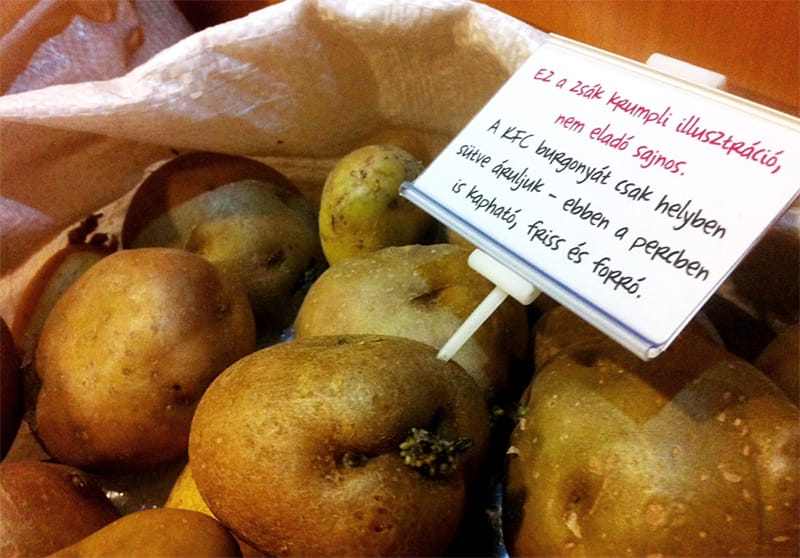 Ez a zsák krumpli illusztráció,
nem eladó sajnos.
A KFC burgonyát csak helyben
sütve áruljuk - ebben a percben
is kapható, friss és forró.